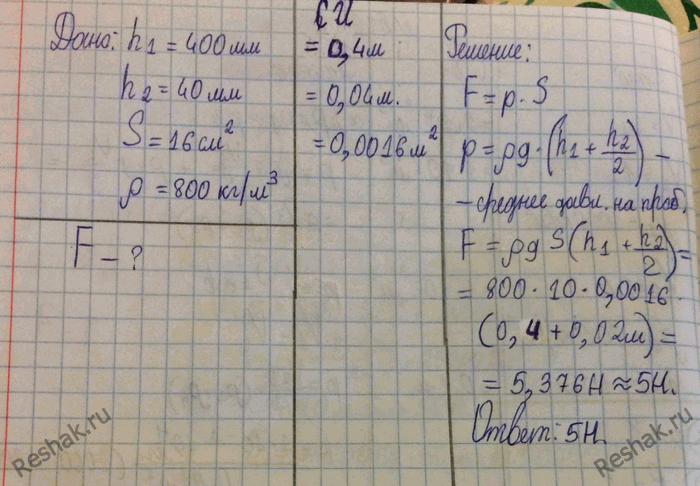 Дано: h1 = 400 мм
h2 = 40 мм
S = 16 см²
ρ = 800 кг/м³
F – ?
СИ
= 0,4 м
= 0,04 м.
= 0,0016 м²
Решение:
F = p · S
p = ρg · (h1 + h2/2) –
– среднее давл. на проб.
F = ρg S (h1 + h2/2) =
= 800 · 10 · 0,0016 ·
(0,4 + 0,02м) =
= 5,376Н ≈ 5Н.
Ответ: 5Н.
Reshak.ru
Reshak.ru